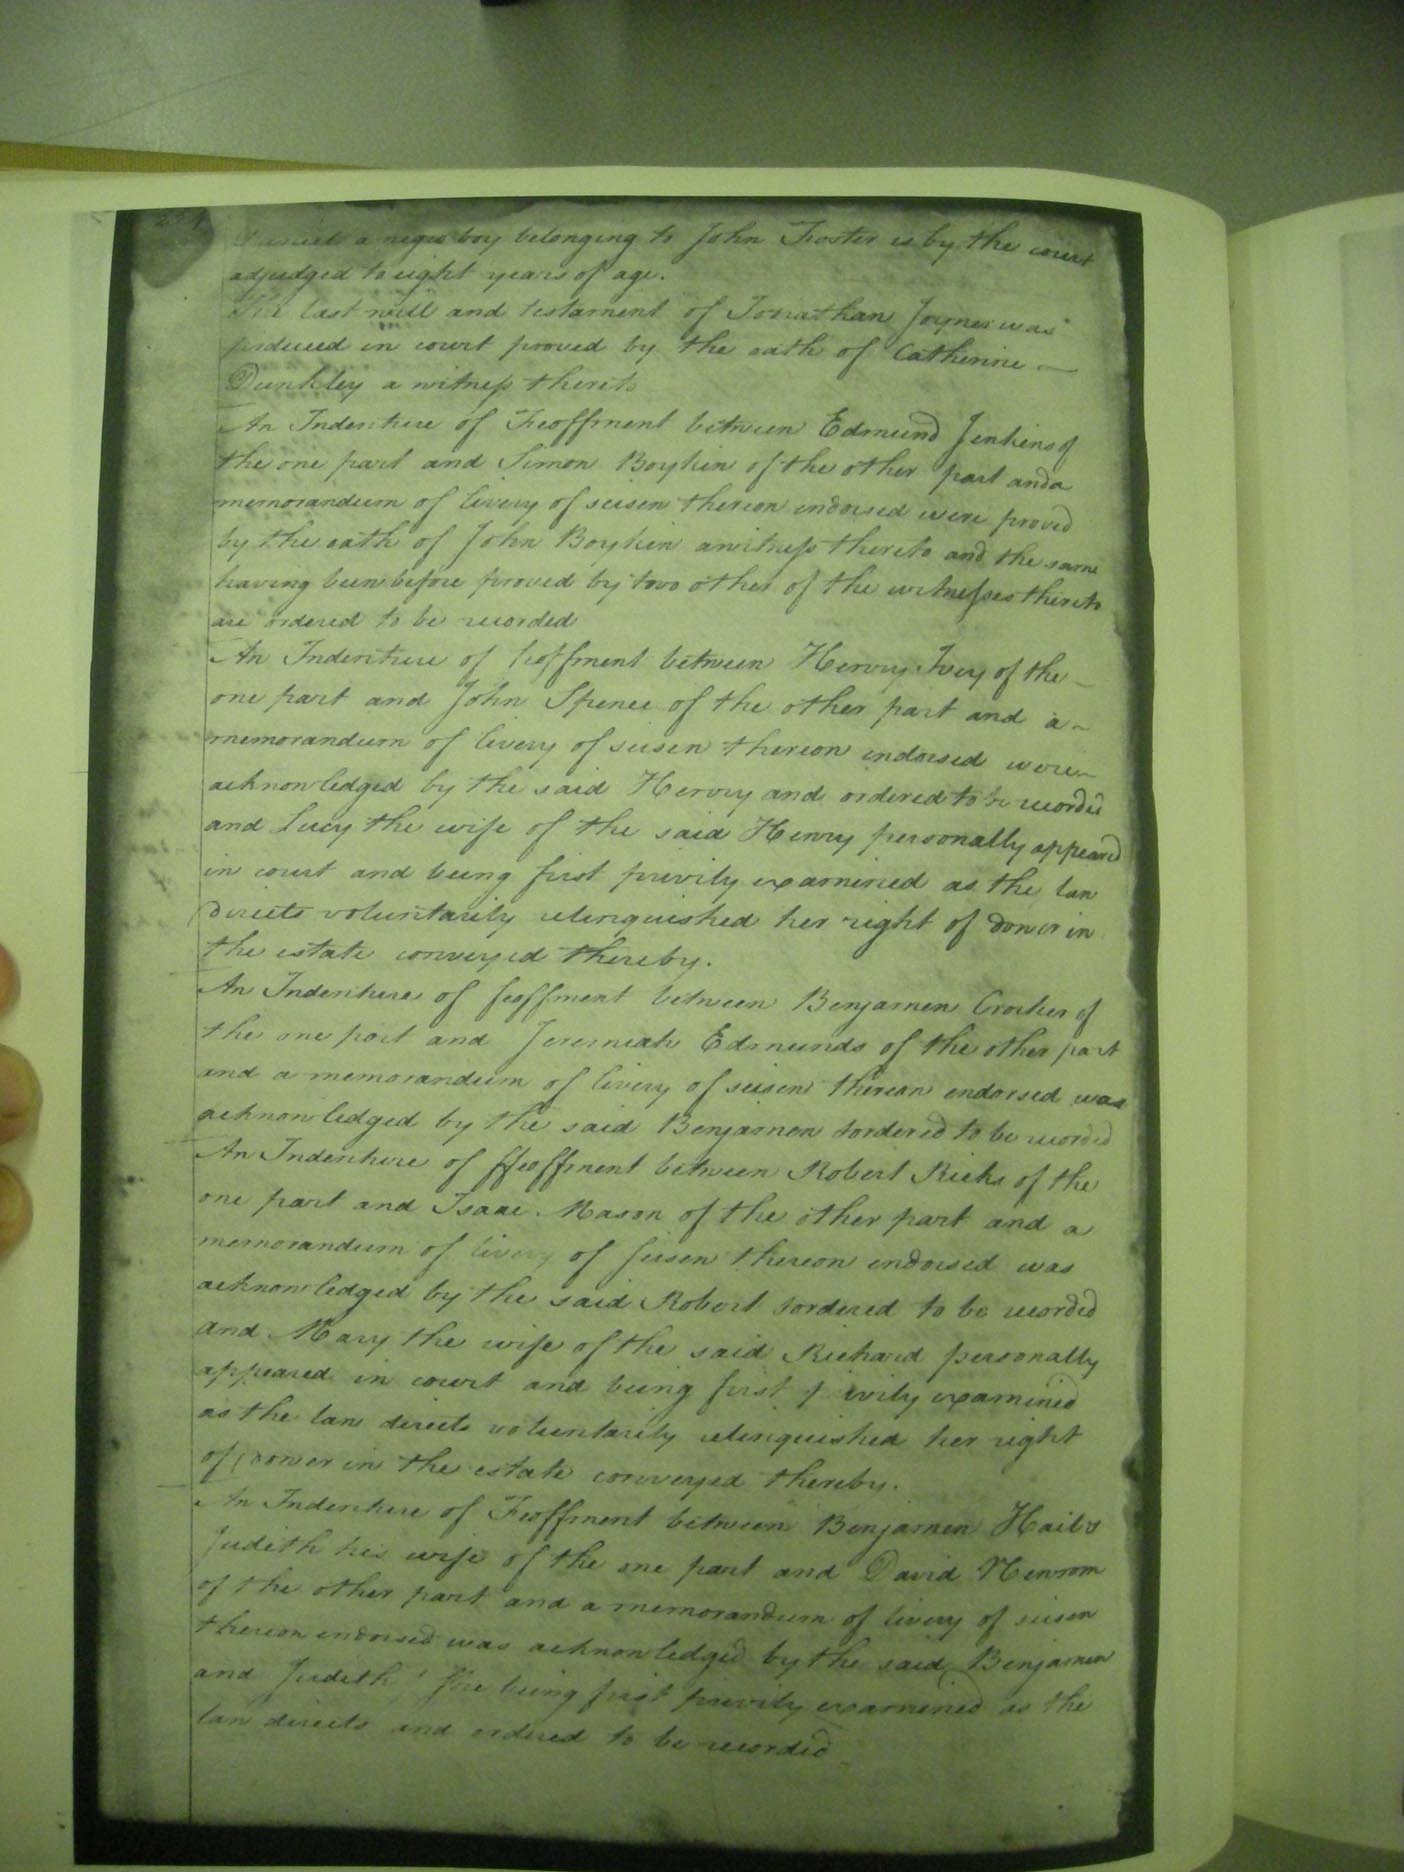 Daniel a negro boy belonging to John Foster is by the court
adjudged to eight years of age.
The last will and testament of Jonathan Joyner was
produced in court proved by the oath of Catherine
Dunkley a witness thereto
An Indenture of Feoffment between Edmund Jenkins of
the one part and Simon Boykin of the other part and a
memorandum of livery of seisen thereon endorsed were proved
by the oath of John Boykin a witness thereto and the same
having been before proved by two other of the witnesses thereto
are ordered to be recorded
An Indenture of feoffment between Henry Ivey of the
one part and John Spence of the other part and a
memorandum of livery of seisen thereon endorsed were
acknowledged by the said Henry and ordered to be recorded
and Lucy the wife of the said Henry personally appeared
in court and being first privily examined as the law
directs voluntarily relinquished her right of dower in
the estate conveyed thereby.
An Indenture of feoffment between Benjamen Crocker of
the one part and Jeremiah Edmunds of the other part
and a memorandum of livery of seisen thereon endorsed was
acknowledged by the said Benjamen & ordered to be recorded
An Indenture of ffeoffment between Robert Ricks of the
one part and Isaac Mason of the other part and a
memorandum of livery of seisen thereon endorsed was
acknowledged by the said Robert & ordered to be recorded
and Mary the wife of the said Richard personally
appeared in court and being first privily examined
as the law directs voluntarily relinquished her right
of Dower in the estate conveyed thereby.
An Indenture of Feoffment between Benjamen Hail &
Judith his wife of the one part and David Newsom
of the other part and a memorandum of livery of seisen
thereon endorsed was acknowledged by the said Benjamen
and Judith she being first privily examined as the
law directs and ordered to be recorded